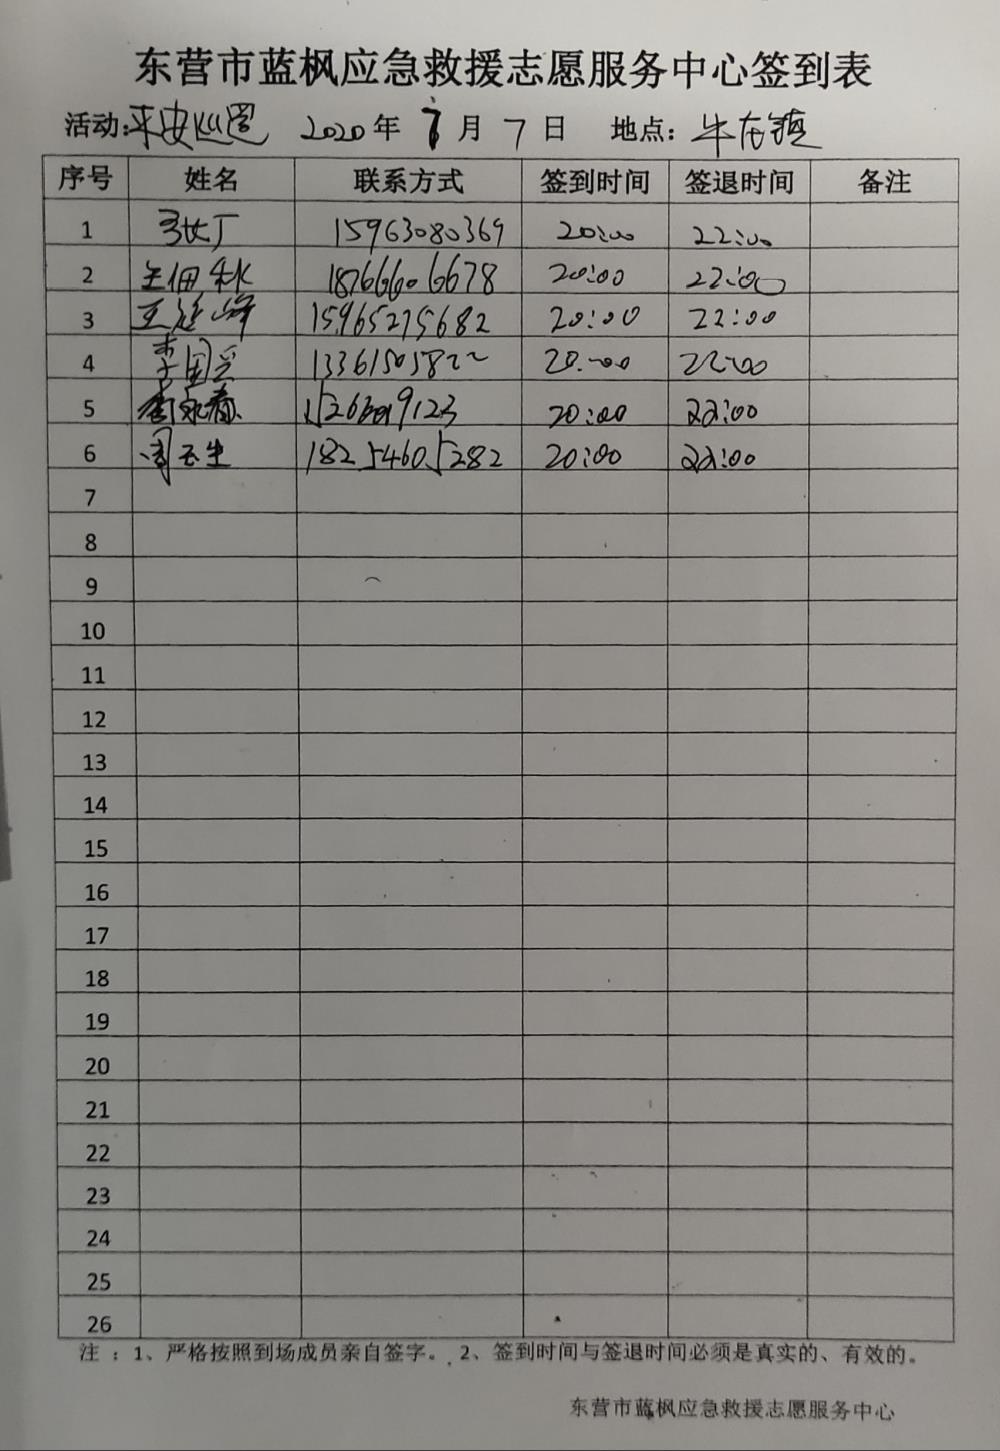 东营市蓝枫应急救援志愿服务中心签到表
活动:平安巡逻 2020年 7月 7日 地点:牛庄镇
序号 姓名 联系方式 签到时间 签退时间 备注
1 张广 15963080369 20:00 22:00
2 王佃秋 18766606678 20:00 22:00
3 王延峰 15965275682 20:00 22:00
4 李国 13361505822 20:00 22:00
5 李永春 20:00 22:00
6 周玉生 18254605282 20:00 22:00
7
8
9
10
11
12
13
14
15
16
17
18
19
20
21
22
23
24
25
26
注:1、严格按照到场成员亲自签字。2、签到时间与签退时间必须是真实的、有效的。
东营市蓝枫应急救援志愿服务中心